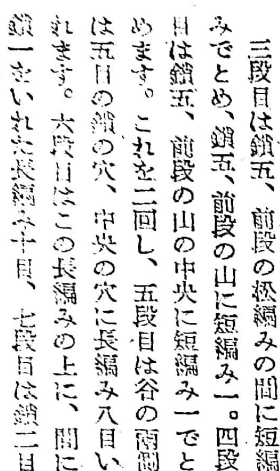 三段目は鎖五、前段の松編みの間に短編
みでとめ、鎖五、前段の山に短編み一。四段
目は鎖五、前段の山の中央に短編み一でと
めます。これを二回し、五段目は谷の両側
は五目の鎖の穴、中央の穴に長編み八目い
れます。六段目はこの長編みの上に、間に
鎖一をいれた長編み十目、七段目は鎖二目